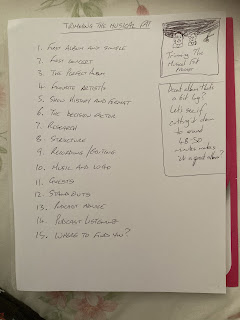 TRIMMING THE MUSICAL FAT
1. FIRST ALBUM AND SINGLE
2. FIRST CONCERT
3. THE PERFECT ALBUM
4. FAVOURITE ARTISTS
5. SHOW HISTORY AND FORMAT
6. THE DECISION FACTOR
7. RESEARCH
8. STRUCTURE
9. RECORDING / EDITING
10. MUSIC AND LOGO
11. GUESTS
12. STANDOUTS
13. PODCAST ADVICE
14. PODCAST LISTENING
15. WHERE TO FIND YOU?
Trimming The
Musical Fat
Podcast
album that's
a bit long?
Let's see if
cutting it down
to around
48:30
minutes makes
it a great album?